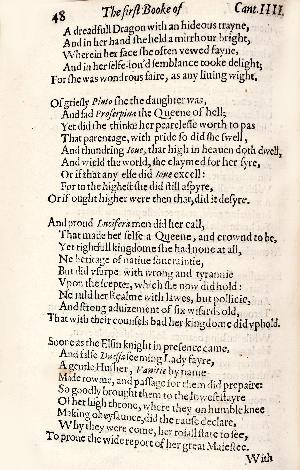 48 The first Booke of Cant. IIII.
A dreadfull Dragon with an hideous trayne,
And in her hand she held a mirrhour bright,
Wherein her face she often vewed fayne,
And in her selfe-lou'd semblance tooke delight;
For she was wondrous faire, as any liuing wight.
Of griesly Pluto she the daughter was,
And sad Proserpina the Queene of hell;
Yet did she thinke her pearelesse worth to pas
That parentage, with pride so did she swell,
And thundring Ioue, that high in heauen doth dwell,
And wield the world, she claymed for her syre,
Or if that any else did Ioue excell:
For to the highest she did still aspyre,
Or if ought higher were then that, did it desyre.
And proud Lucifera men did her call,
That made her selfe a Queene, and crownd to be,
Yet rightfull kingdome she had none at all,
Ne heritage of natiue soueraintie,
But did vsurpe with wrong and tyrannie
Vpon the scepter, which she now did hold:
Ne ruld her Realme with lawes, but pollicie,
And strong aduizement of six wisards old,
That with their counsels bad her kingdome did vphold.
Soone as the Elfin knight in presence came,
And false Duessa seeming Lady fayre,
A gentle Husher, Vanitie by name
Made rowme, and passage for them did prepaire:
So goodly brought them to the lowest stayre
Of her high throne, where they on humble knee
Making obeysaunce, did the cause declare,
Why they were come, her roiall state to see,
To proue the wide report of her great Maiestee.
With